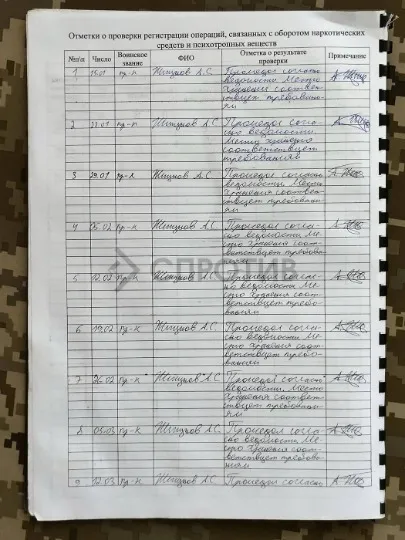 Отметки о проверки регистрации операций, связанных с оборотом наркотических
средств и психотропных веществ
№п/п Число Воинское звание ФИО Отметка о результате проверки Примечание
1 15.01 пр-к А.С. Процедол согласно
ведомости. Место
хранения соответ-
ствует требовани-
ям
2 22.01 пр-к А.С. Процедол согла-
сно ведомости
Место хранения
соответствует
требованиям
3 29.01 пр-к А.С. Процедол согласно
ведомости. Место
хранения соответ-
ствует требовани-
ям
4 05.02 пр-к А.С. Процедол соглас-
но ведомости. Ме-
сто хранения соот-
ветствует требова-
ниям
СПРОТИВ
5 12.02 пр-к А.С. Процедол соглас-
но ведомости. Ме-
сто хранения соот-
ветствует требо-
ваниям
6 19.02 пр-к А.С. Процедол согла-
сно ведомости. Ме-
сто хранения соот-
ветствует требо-
ваниям
7 26.02 пр-к А.С. Процедол согласно
ведомости. Место
хранения соответ-
ствует требовани-
ям
8 05.03 пр-к А.С. Процедол согла-
сно ведомости. Ме-
сто хранения соо-
тветствует требова-
ниям
9 12.03 пр-к А.С. Процедол согласн